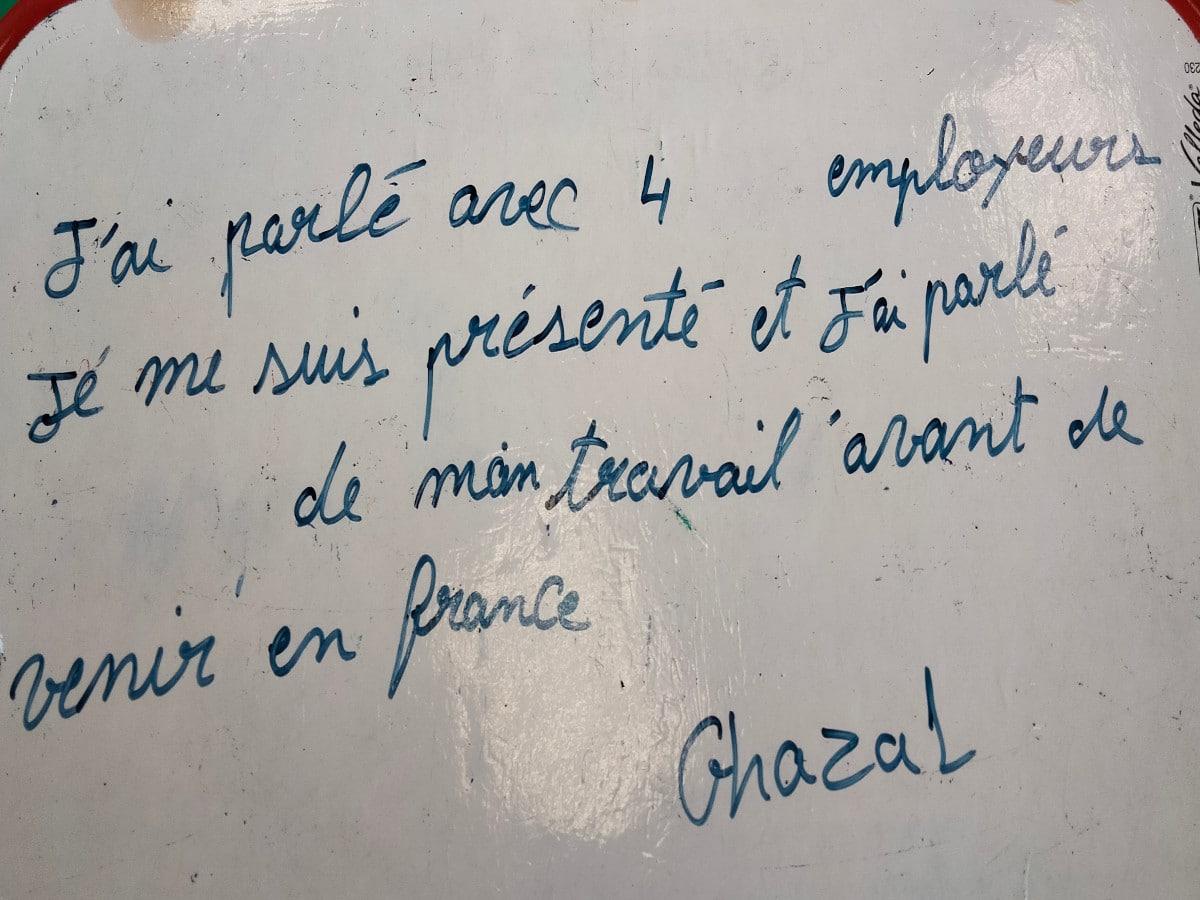 J'ai parlé avec 4 employeurs
Jé me suis présenté et J'ai parlé
de mon travail avant de
venir en france
Ghazal
230
Velleda